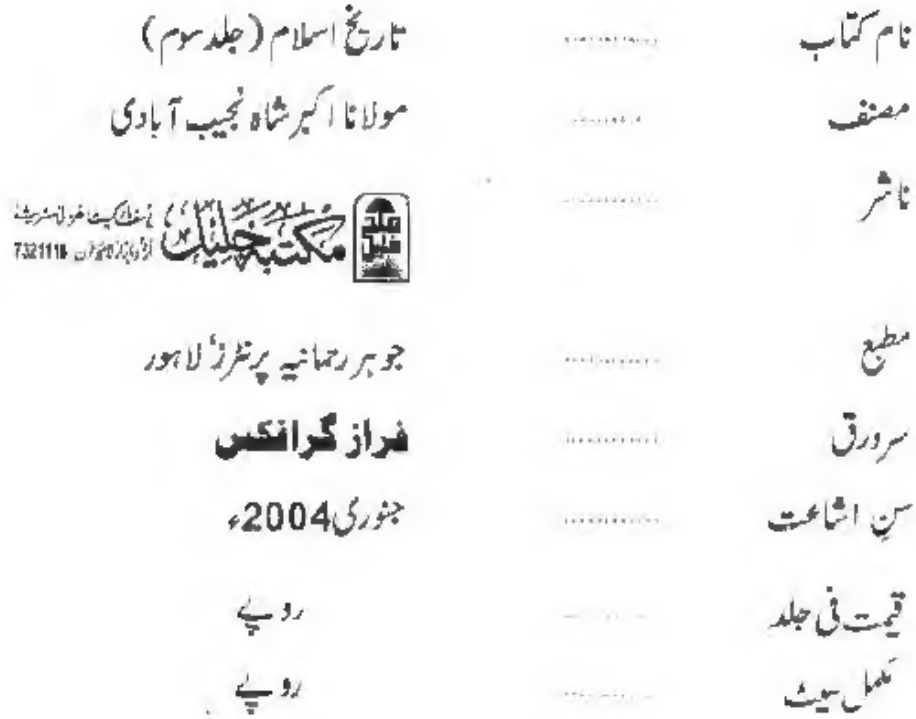 نام کتاب ............ تاریخ اسلام (جلد سوم)
مصنف ............ مولانا اکبر شاہ نجیب آبادی
ناشر ............ مکتبہ خلیل
7321118
مطبع ............ جوہر رحمانیہ پرنٹرز' لاہور
سرورق ............ فراز گرافکس
سن اشاعت ............ جنوری 2004ء
قیمت فی جلد ............ روپے
مکمل سیٹ ............ روپے